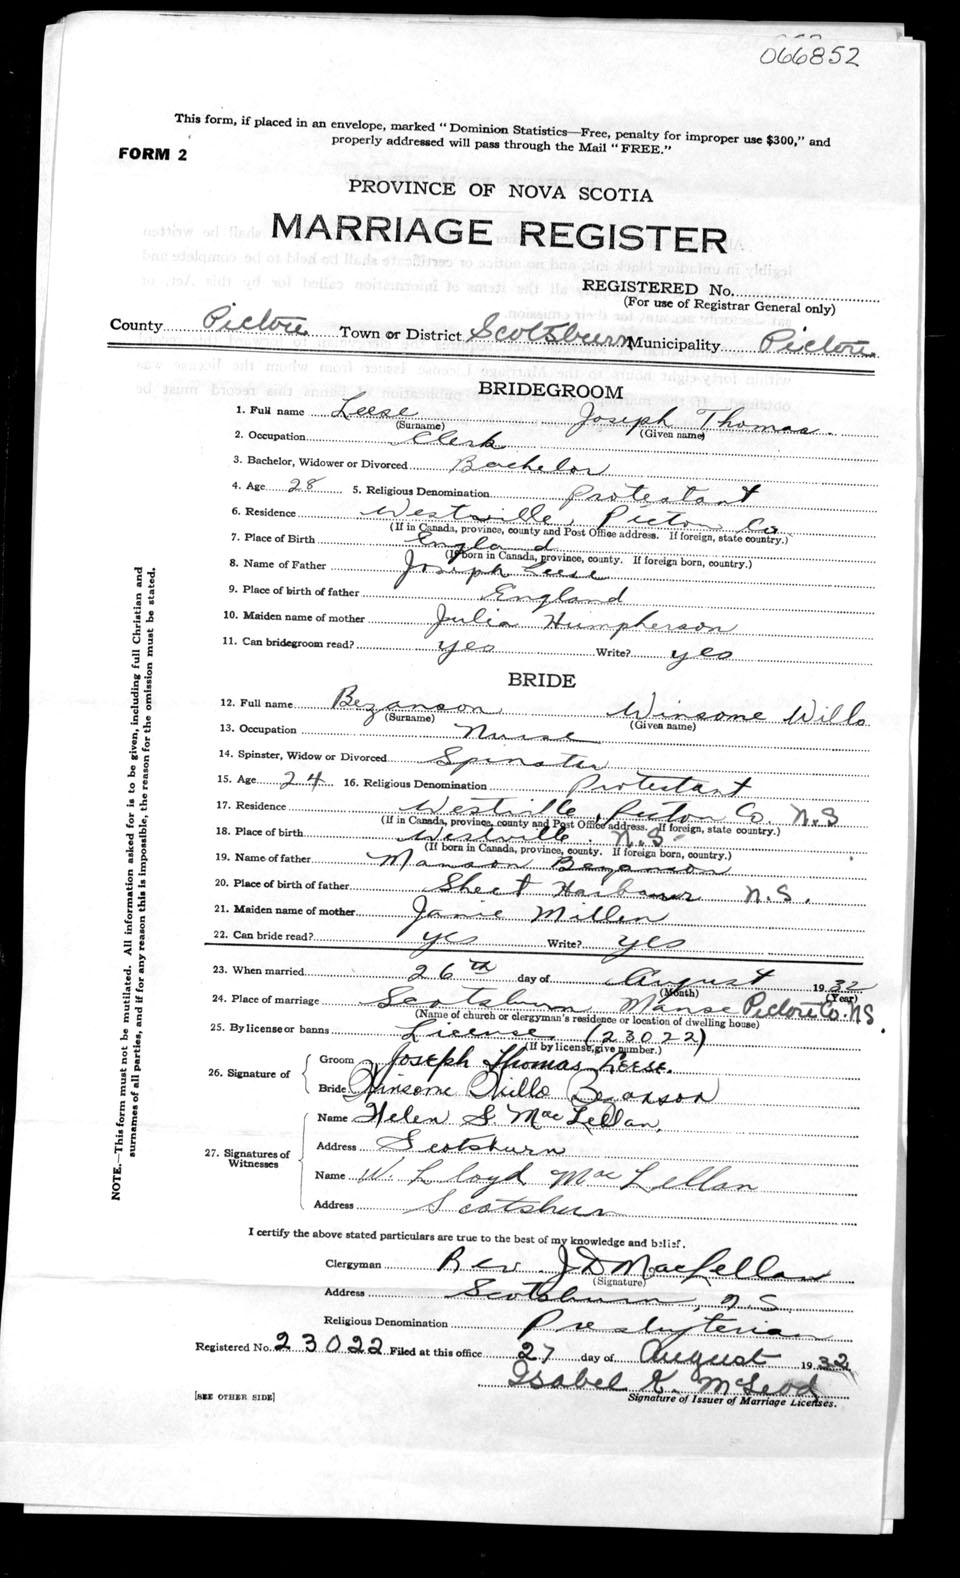 066852
This form, if placed in an envelope, marked "Dominion Statistics—Free, penalty for improper use $300," and
properly addressed will pass through the Mail "FREE."
FORM 2
PROVINCE OF NOVA SCOTIA
MARRIAGE REGISTER
REGISTERED No.
(For use of Registrar General only)
County Pictou Town or District Scotsburn Municipality Pictou
BRIDEGROOM
1. Full name Leese Joseph Thomas
(Surname) (Given name)
2. Occupation Clerk
3. Bachelor, Widower or Divorced Bachelor
4. Age 28 5. Religious Denomination Protestant
6. Residence Westville, Pictou Co
(If in Canada, province, county and Post Office address. If foreign, state country.)
7. Place of Birth England
(If born in Canada, province, county. If foreign born, country.)
8. Name of Father Joseph Leese
9. Place of birth of father England
10. Maiden name of mother Julia Humpherson
11. Can bridegroom read? yes Write? yes
BRIDE
12. Full name Bezanson Winsome Willo
(Surname) (Given name)
13. Occupation Nurse
14. Spinster, Widow or Divorced Spinster
15. Age 24 16. Religious Denomination Protestant
17. Residence Westville, Pictou Co. N.S
(If in Canada, province, county and Post Office address. If foreign, state country.)
18. Place of birth Westville. N.S.
(If born in Canada, province, county. If foreign born, country.)
19. Name of father Manson Bezanson
20. Place of birth of father Sheet Harbour N.S.
21. Maiden name of mother Janie Millen
22. Can bride read? yes Write? yes
23. When married 26th day of August 1932
(Month) (Year)
24. Place of marriage Scotsburn Manse Pictou Co. NS.
(Name of church or clergyman's residence or location of dwelling house)
25. By license or banns License (23022)
(If by license, give number.)
26. Signature of
Groom Joseph Thomas Leese.
Bride Winsome Willo Bezanson
27. Signatures of Witnesses
Name Helen S. MacLellan,
Address Scotsburn
Name W. Lloyd MacLellan
Address Scotsburn
I certify the above stated particulars are true to the best of my knowledge and belief.
Clergyman Rev. J D MacLellan
(Signature)
Address Scotsburn, N.S.
Religious Denomination Presbyterian
Registered No. 23022 Filed at this office 27 day of August 1932
Isabel K. McLeod
[SEE OTHER SIDE] Signature of Issuer of Marriage Licenses.
NOTE.—This form must not be mutilated. All information asked for is to be given, including full Christian and
surnames of all parties, and if for any reason this is impossible, the reason for the omission must be stated.